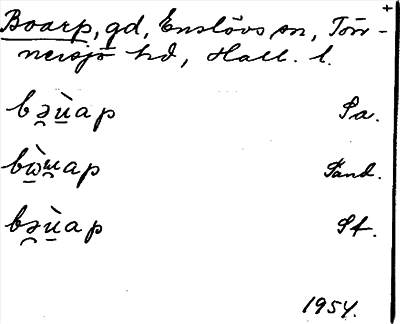 Boarp, gd, Enslövs sn, Tön-
nersjö hd, Hall. l.
bə̯ù̱ap Sa.
bὼ̱ɯ̯ap Sand.
bə̯ù̱ap St.
1954.